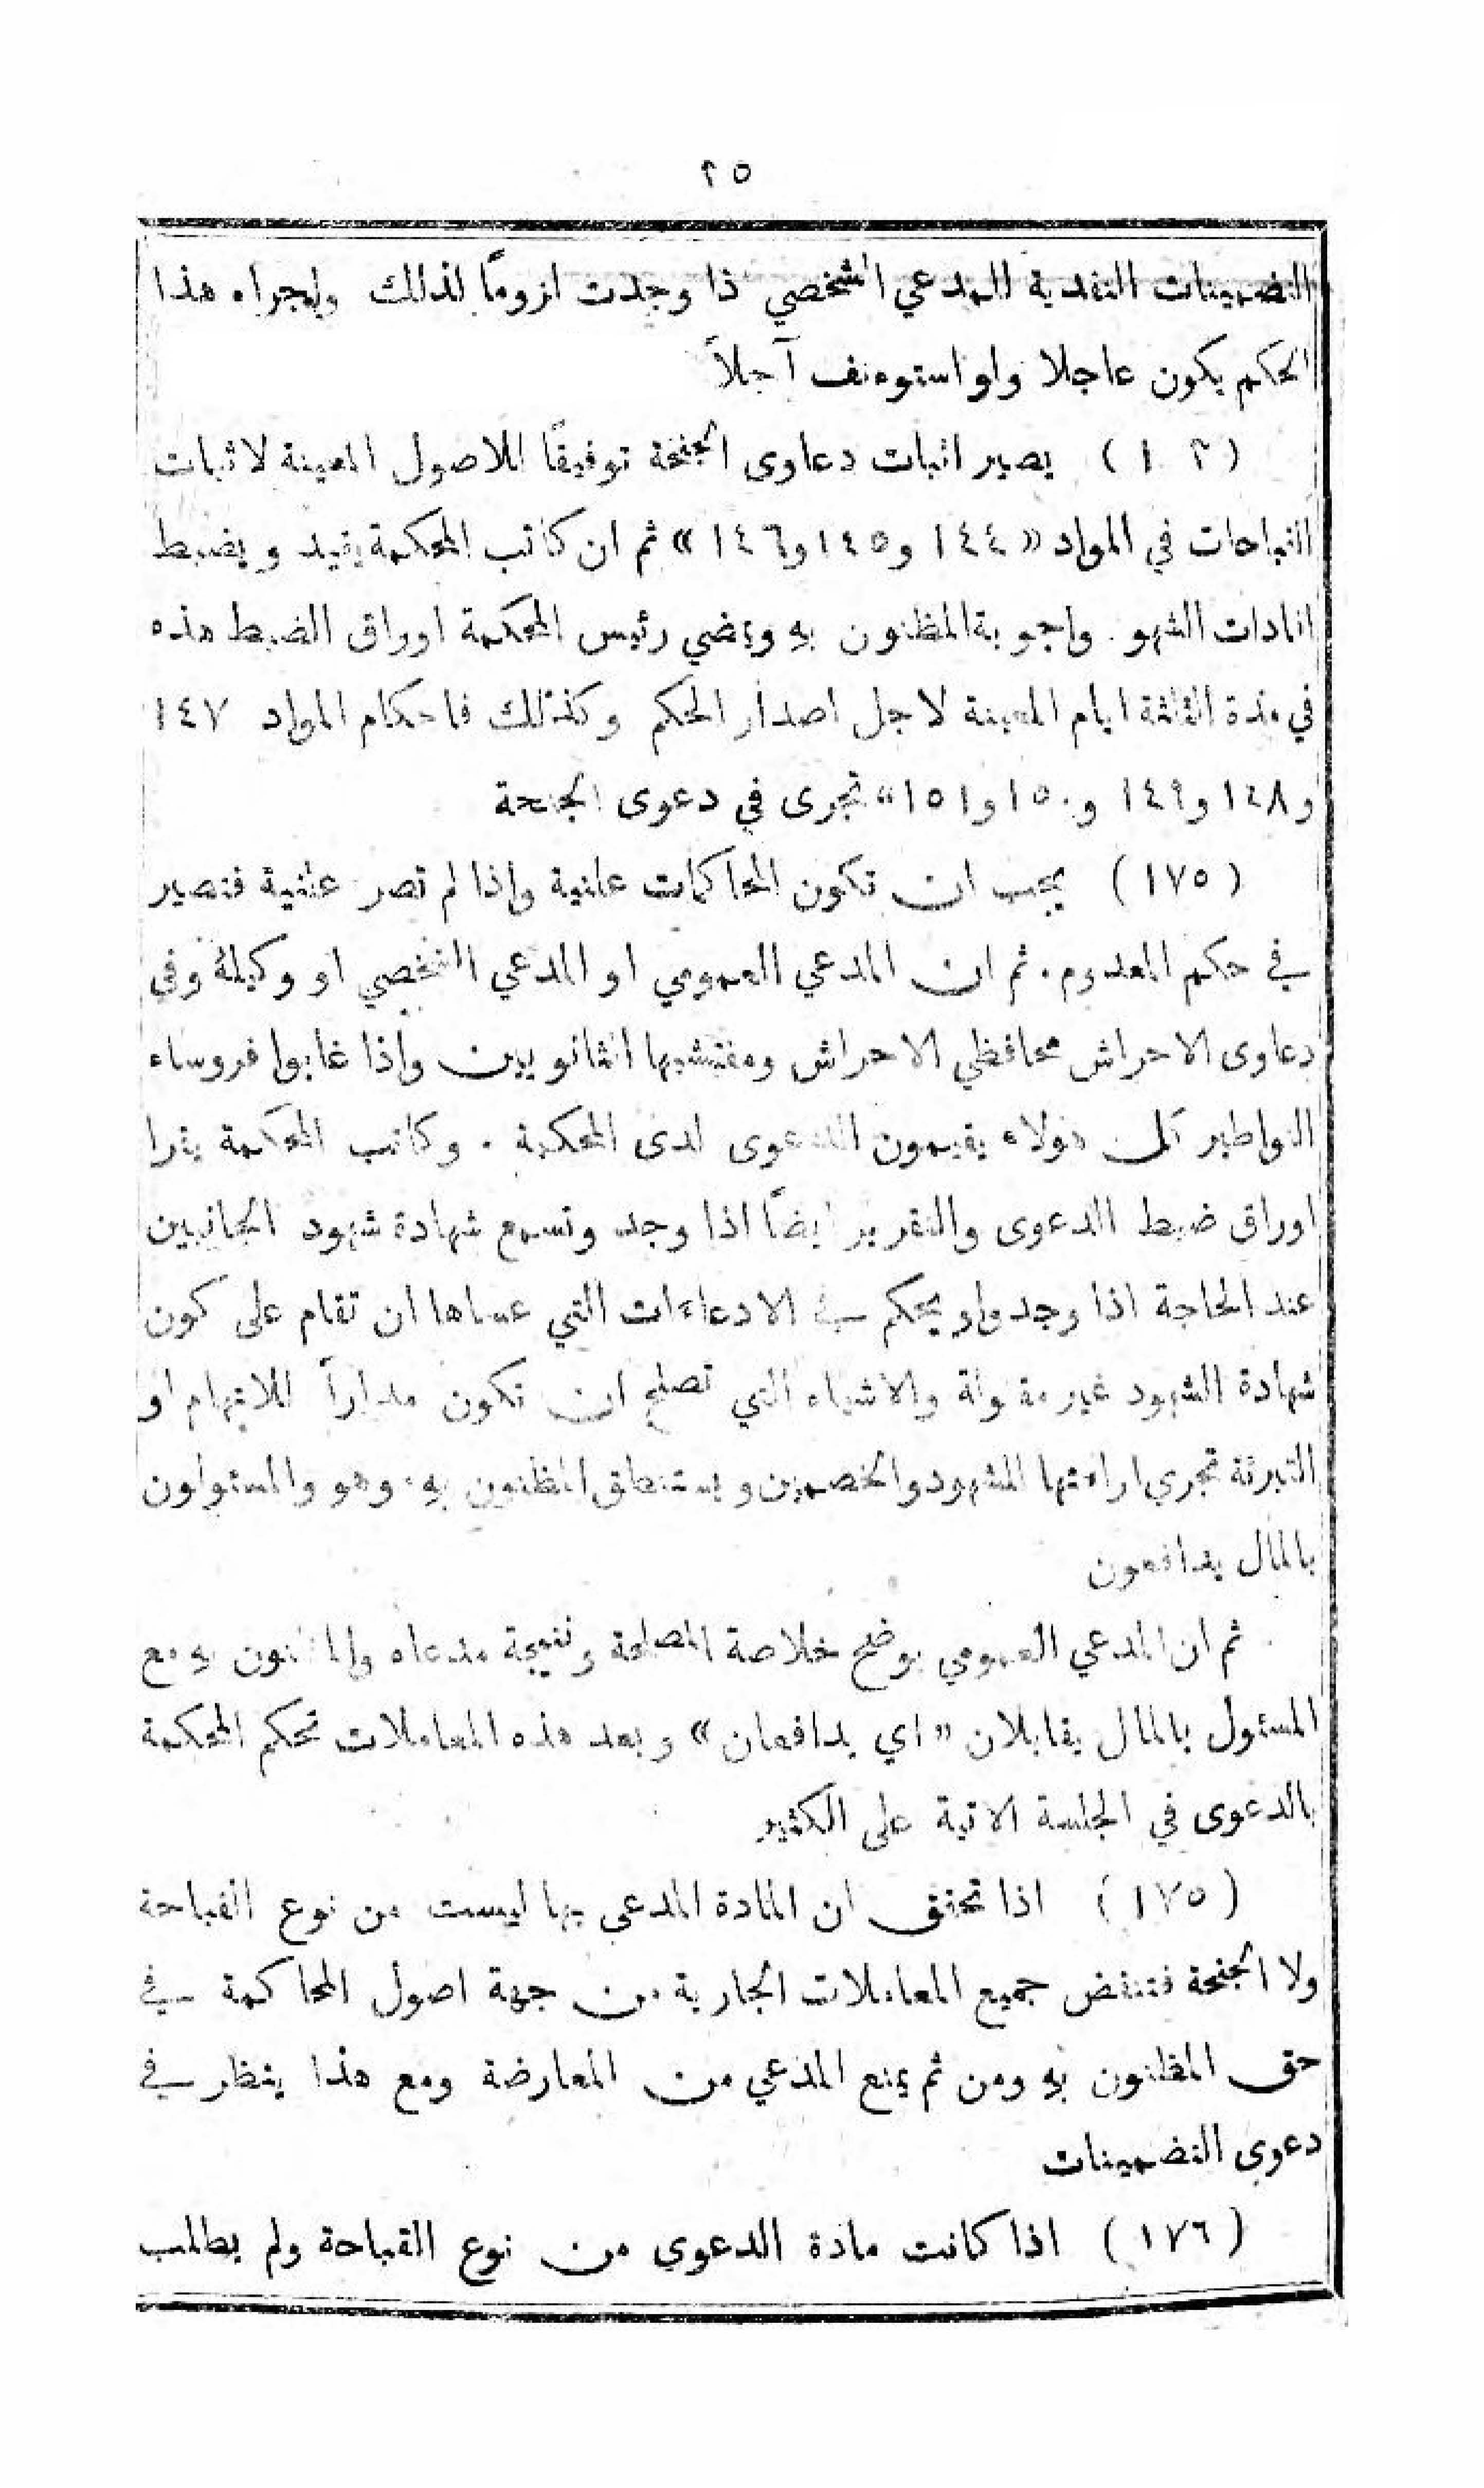 ٢٥
التضمينات النقدية للمدعي الشخصي ذا وجدت لزومًا لذلك واجراء هذا
الحكم يكون عاجلا ولو استوءنف آجلاً
يصير اثبات دعاوى الجنحة توفيقًا للاصول المعينة لاثبات
القباحات في المواد «١٤٤ و١٤٥ و١٤٦» ثم ان كاتب المحكمة يقيد ويضبط
افادات الشهو واجوبة المظنون بهِ ويمضي رئيس المحكمة اوراق الضبط هذه
في مدة الثلثة ايام المعينة لاجل اصدار الحكم وكذلك فاحكام المواد ١٤٧
و١٤٨ و١٤٩ و١٥٠ و١٥١» تجرى في دعوى الجنحة
(١٧٥) يجب ان تكون المحاكمات علنية واذا لم تصر علنية فتصير
في حكم المعدوم. ثم ان المدعي العمومي او المدعي الشخصي او وكيلهُ وفي
دعاوى الاحراش محافظي الاحراش ومفتشيها الثانويين واذا غابوا فروساء
النواطير كل هولاء يقيمون الدعوى لدى المحكمة . وكاتب المحكمة يقرا
اوراق ضبط الدعوى والتقرير ايضًا اذا وجد وتسمع شهادة شهود الجانبين
عند الحاجة اذا وجدوا ويحكم في الادعاءات التي عساها ان تقام على كون
شهادة الشهود غير مقبولة والاشياء التي تصلح ان تكون مداراً للاتهام او
التبرئة تجري اراءتها للشهود والخصمين ويستنطق المظنون بهِ وهو والمسئولون
بالمال يدافعون
ثم ان المدعي العمومي يوضح خلاصة المصلحة ونتيجة مدعاه والمظنون بهِ مع
المسئول بالمال يقابلان «اي يدافعان» وبعد هذه المعاملات تحكم المحكمة
بالدعوى في الجلسة الاتية على الكثير
(١٧٥) اذا تحقق ان المادة المدعى بها ليست من نوع القباحة
ولا الجنحة فتنقض جميع المعاملات الجارية من جهة اصول المحاكمة في
حق المظنون بهِ ومن ثم يمنع المدعي من المعارضة ومع هذا ينظر في
دعوى التضمينات
(١٧٦) اذا كانت مادة الدعوى من نوع القباحة ولم يطلب